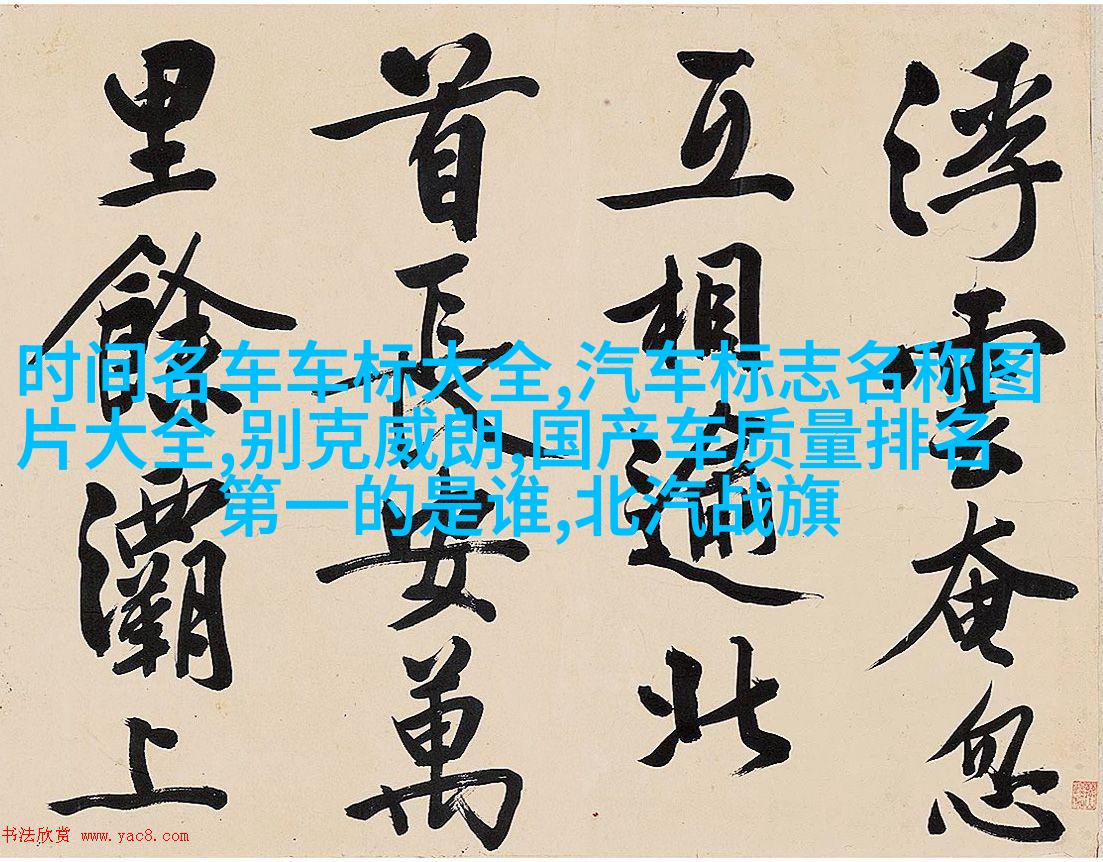 浮雲奄忽
互相逾北
首長安萬
里餘灞上
时间名车车标大全,汽车标志名称图
片大全,别克威朗,国产车质量排名
第一的是谁,北汽战旗
书法欣赏 www.yac8.com